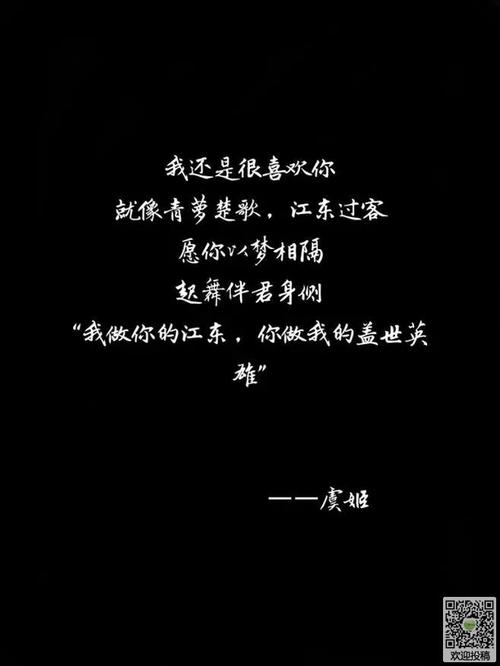 我还是很喜欢你
就像青萝楚歌，江东过客
愿你以梦相隔
起舞伴君身侧
“我做你的江东，你做我的盖世英
雄”
——虞姬
欢迎投稿